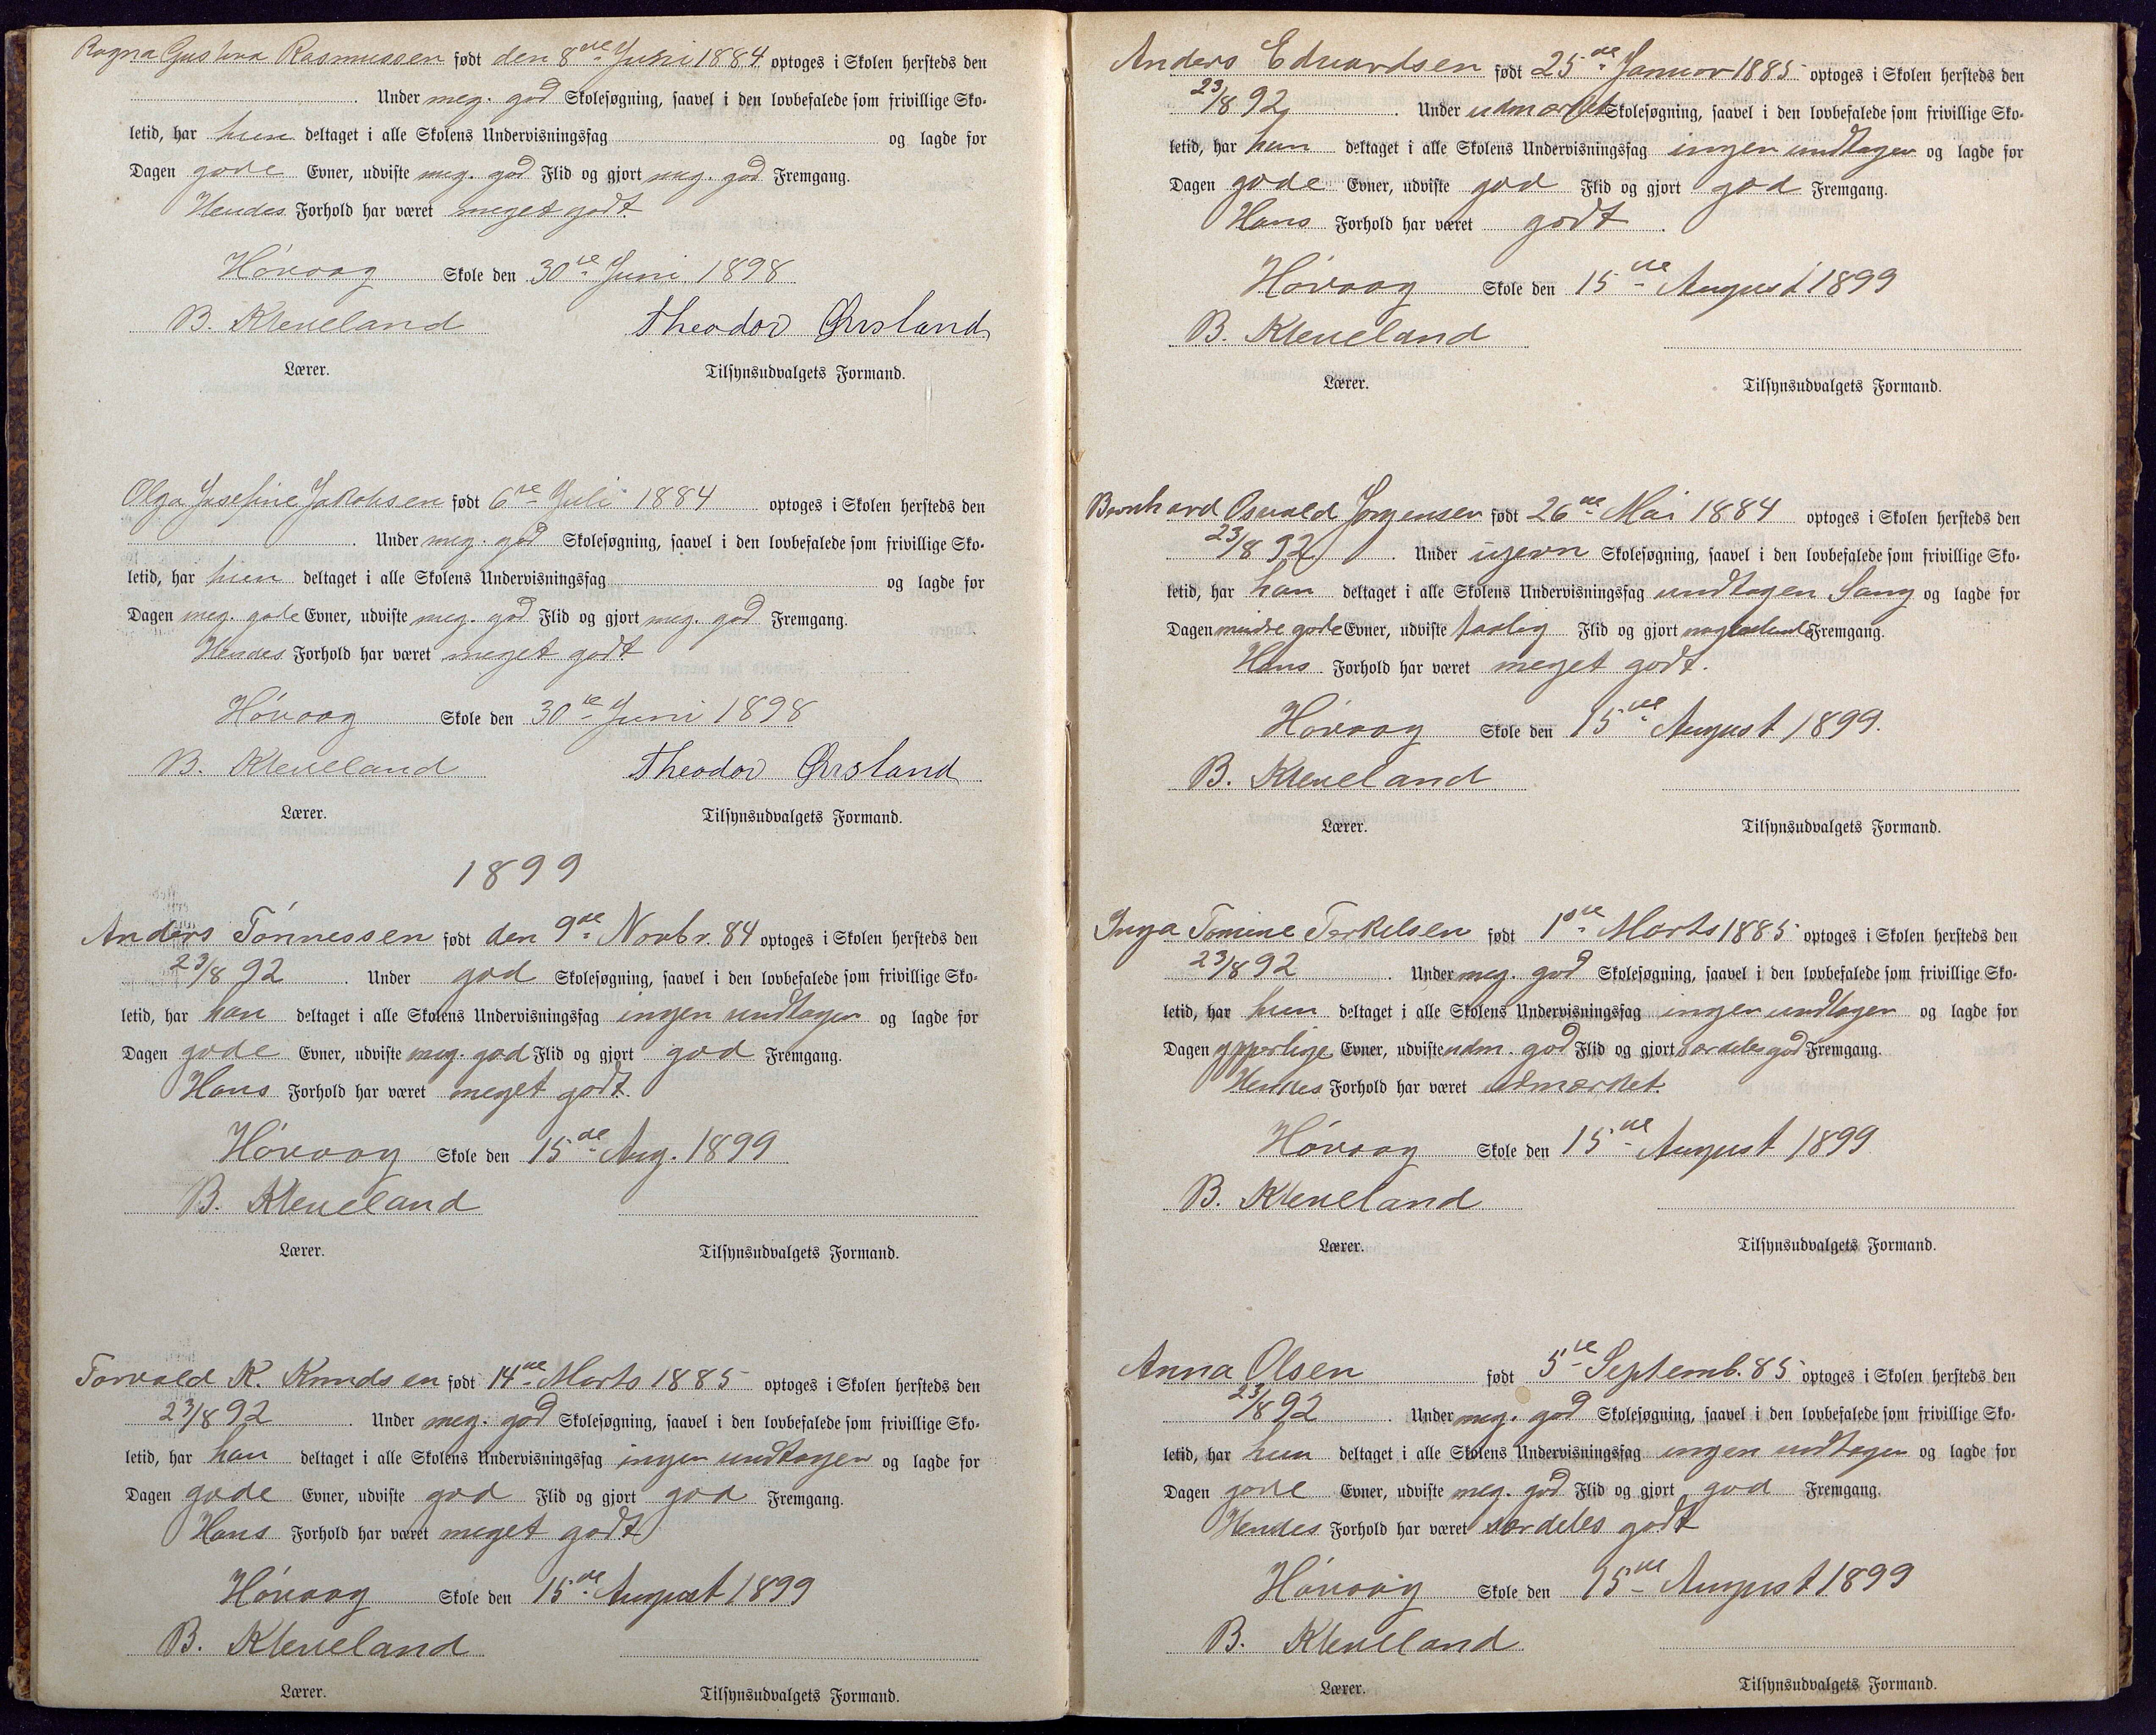 Ragna Gustava Rasmussen født den 8de Juni 1884 optoges i Skolen hersteds den
. Under meg. god Skolesøgning, saavel i den lovbefalede som frivillige Sko-
letid, har hun deltaget i alle Skolens Undervisningsfag og lagde for
Dagen gode Evner, udviste meg. god Flid og gjort meg. god Fremgang.
Hendes Forhold har været meget godt.
Høvaag Skole den 30te Juni 1898
B. Kleveland Theodor Ørsland
Lærer. Tilsynsudvalgets Formand.
Olga Josefine Jakobsen født 6te Juli 1884 optoges i Skolen hersteds den
. Under meg. god Skolesøgning, saavel i den lovbefalede som frivillige Sko-
letid, har hun deltaget i alle Skolens Undervisningsfag og lagde for
Dagen meg. gode Evner, udviste meg. god Flid og gjort meg. god Fremgang.
Hendes Forhold har været meget godt
Høvaag Skole den 30te Juni 1898
B. Kleveland Theodor Ørsland
Lærer. Tilsynsudvalgets Formand.
1899
Anders Tønnessen født den 9de Novbr. 84 optoges i Skolen hersteds den
23/8 92 . Under god Skolesøgning, saavel i den lovbefalede som frivillige Sko-
letid, har han deltaget i alle Skolens Undervisningsfag ingen undtagen og lagde for
Dagen gode Evner, udviste meg. god Flid og gjort god Fremgang.
Hans Forhold har været meget godt.
Høvaag Skole den 15de Aug. 1899
B. Kleveland
Lærer. Tilsynsudvalgets Formand.
Torvald K. Knudsen født 14de Marts 1885 optoges i Skolen hersteds den
23/8 92 . Under meg. god Skolesøgning, saavel i den lovbefalede som frivillige Sko-
letid, har han deltaget i alle Skolens Undervisningsfag ingen undtagen og lagde for
Dagen gode Evner, udviste god Flid og gjort god Fremgang.
Hans Forhold har været meget godt
Høvaag Skole den 15de August 1899
B. Kleveland
Lærer. Tilsynsudvalgets Formand.
Anders Edvardsen født 25de Januar 1885 optoges i Skolen hersteds den
23/8 92 . Under udmærket Skolesøgning, saavel i den lovbefalede som frivillige Sko-
letid, har han deltaget i alle Skolens Undervisningsfag ingen undtagen og lagde for
Dagen gode Evner, udviste god Flid og gjort god Fremgang.
Hans Forhold har været godt .
Høvaag Skole den 15de August 1899
B. Kleveland
Lærer. Tilsynsudvalgets Formand.
Bernhard Osvald Jørgensen født 26de Mai 1884 optoges i Skolen hersteds den
23/8 92 . Under ujevn Skolesøgning, saavel i den lovbefalede som frivillige Sko-
letid, har han deltaget i alle Skolens Undervisningsfag undtagen Sang og lagde for
Dagen mindre gode Evner, udviste taalig Flid og gjort nogenlunde Fremgang.
Hans Forhold har været meget godt.
Høvaag Skole den 15de August 1899.
B. Kleveland
Lærer. Tilsynsudvalgets Formand.
Inga Tomine Terkelsen født 1ste Marts 1885 optoges i Skolen hersteds den
23/8 92 . Under meg. god Skolesøgning, saavel i den lovbefalede som frivillige Sko-
letid, har hun deltaget i alle Skolens Undervisningsfag ingen undtagen og lagde for
Dagen ypperlige Evner, udviste udm. god Flid og gjort særdeles god Fremgang.
Hendes Forhold har været udmærket.
Høvaag Skole den 15de August 1899
B. Kleveland
Lærer. Tilsynsudvalgets Formand.
Anna Olsen født 5te Septemb. 85 optoges i Skolen hersteds den
23/8 92 . Under meg. god Skolesøgning, saavel i den lovbefalede som frivillige Sko-
letid, har hun deltaget i alle Skolens Undervisningsfag ingen undtagen og lagde for
Dagen gode Evner, udviste meg. god Flid og gjort god Fremgang.
Hendes Forhold har været særdeles godt
Høvaag Skole den 15de August 1899
B. Kleveland
Lærer. Tilsynsudvalgets Formand.